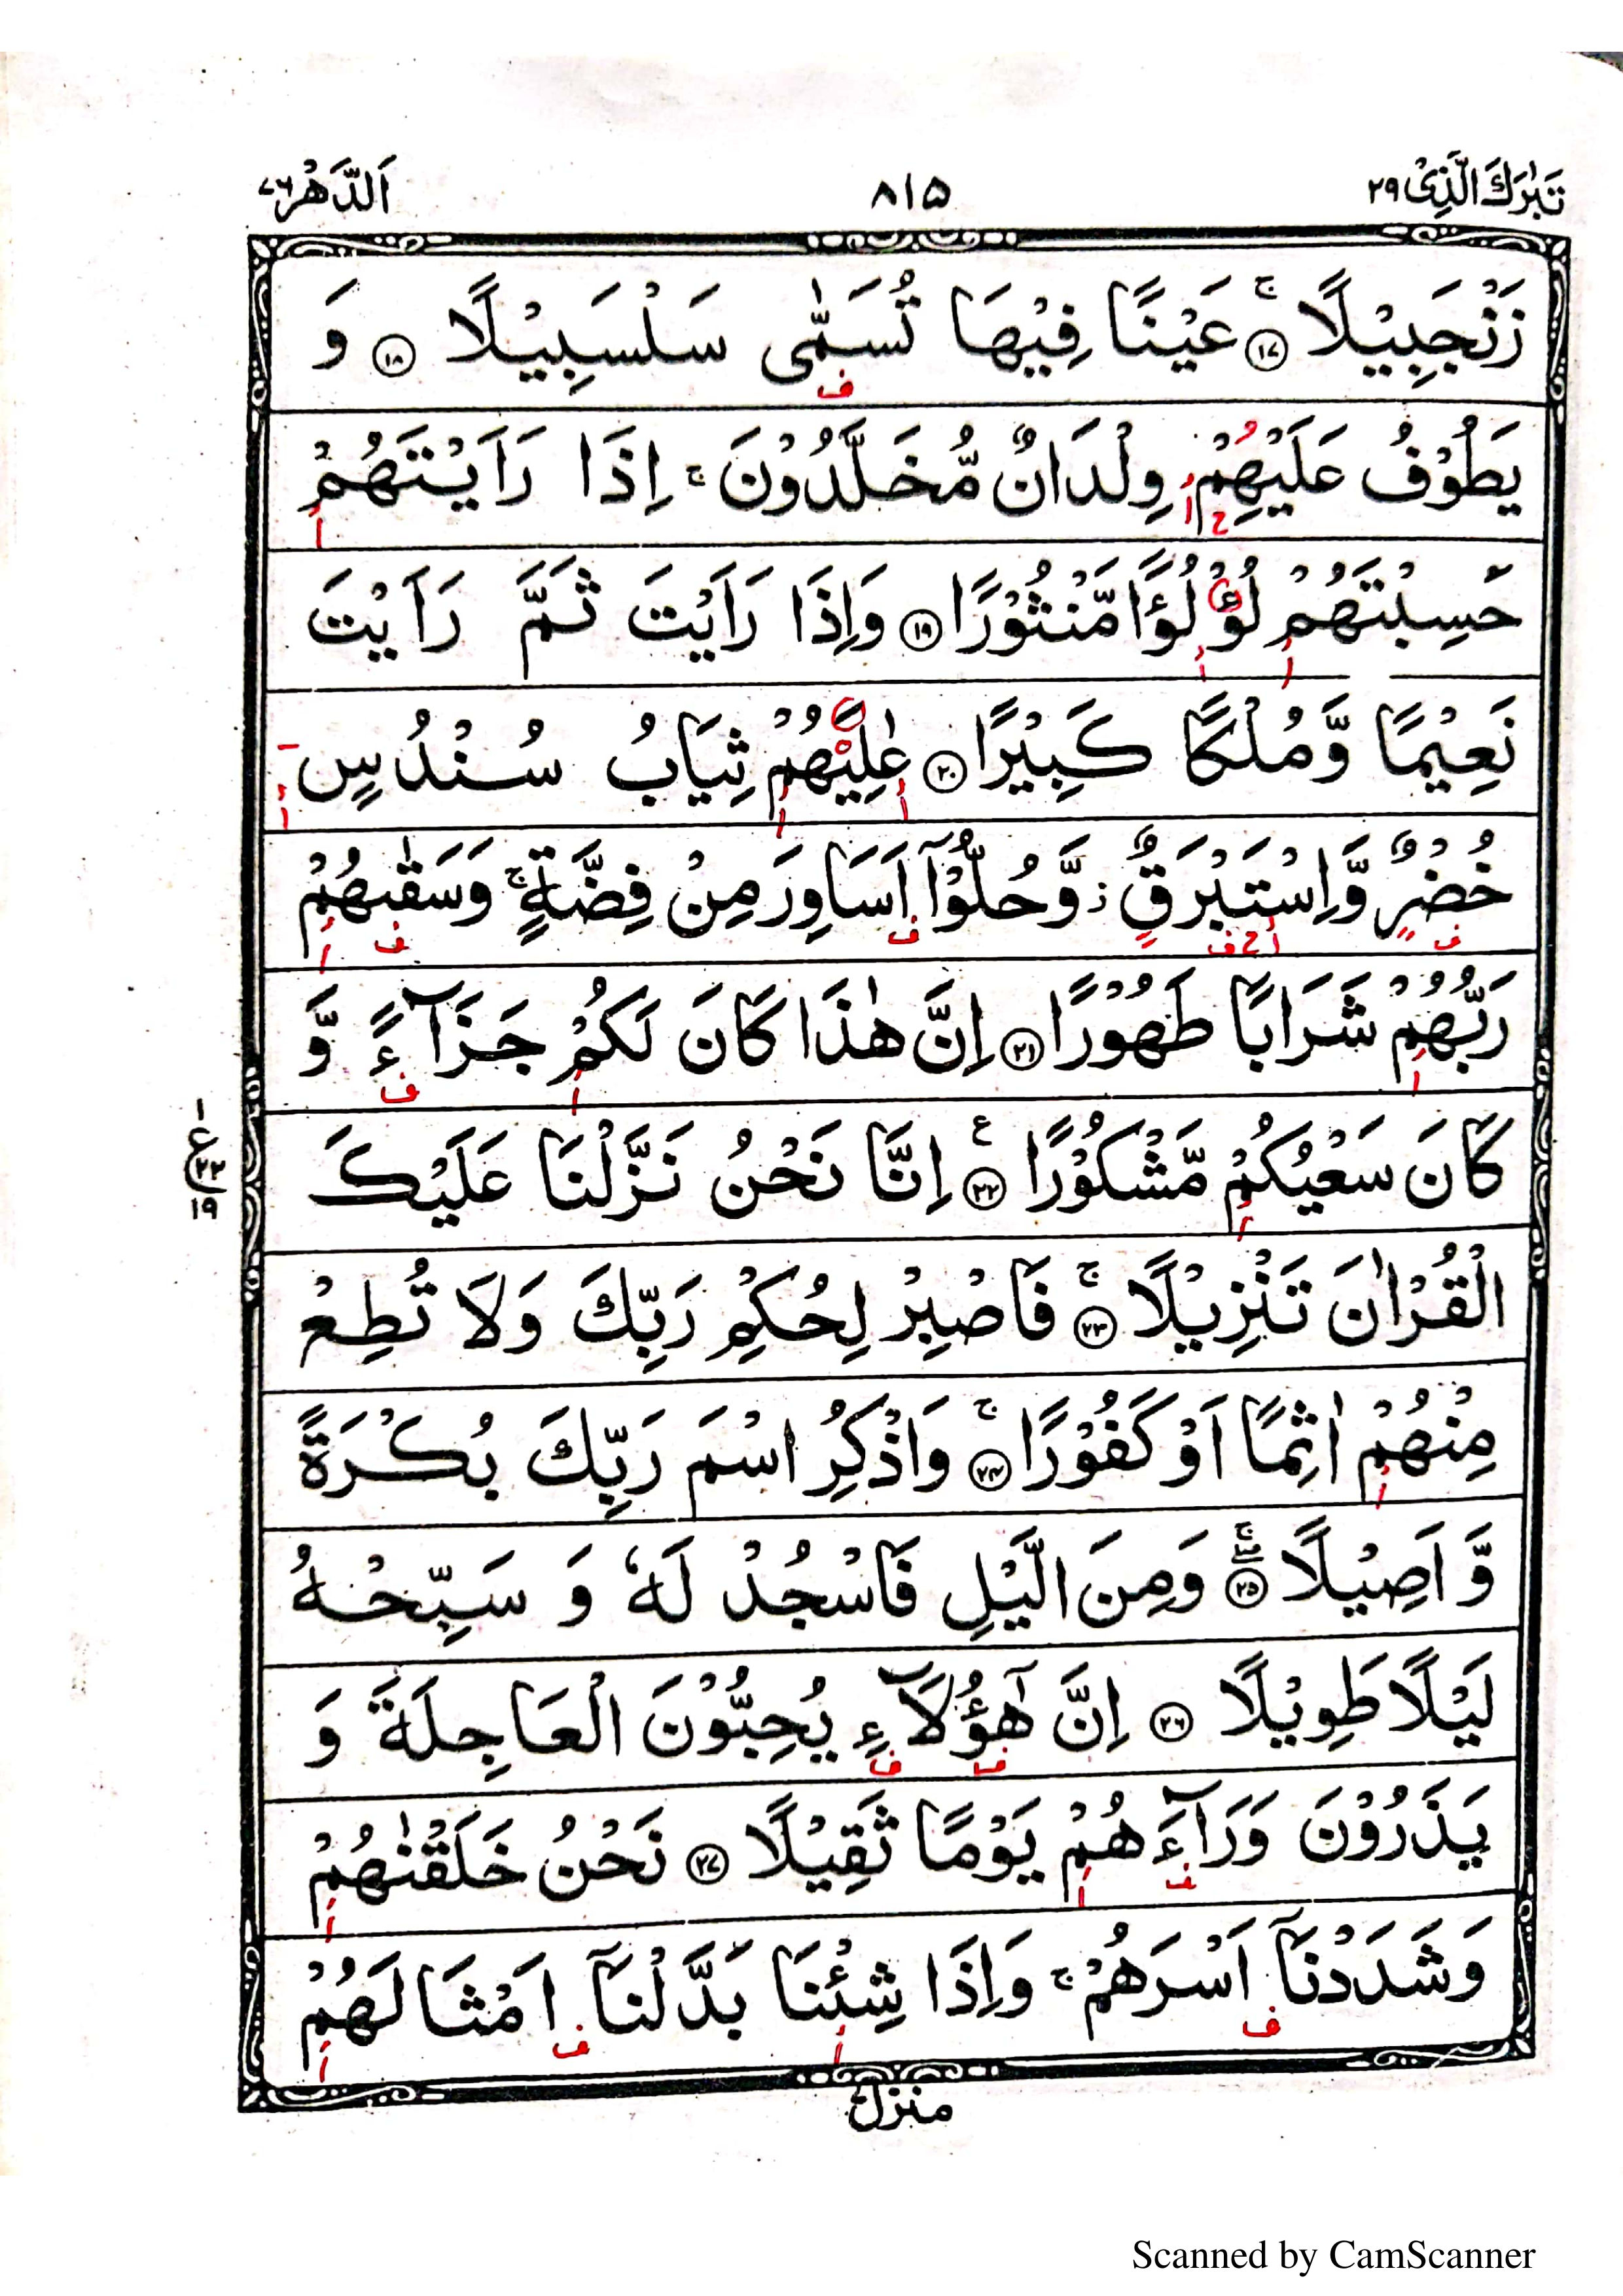 تَبٰرَكَ الَّذِیْ ۲۹
۸۱۵
اَلدَّهْر ۷۶
زَنْجَبِیْلًا ۚ ۱۷ عَیْنًا فِیْهَا تُسَمّٰی سَلْسَبِیْلًا ۱۸ وَ
یَطُوْفُ عَلَیْهِمْ وِلْدَانٌ مُّخَلَّدُوْنَ ۚ اِذَا رَاَیْتَهُمْ
حَسِبْتَهُمْ لُؤْلُؤًا مَّنْثُوْرًا ۱۹ وَاِذَا رَاَیْتَ ثَمَّ رَاَیْتَ
نَعِیْمًا وَّمُلْكًا كَبِیْرًا ۲۰ عٰلِیَهُمْ ثِیَابُ سُنْدُسٍ
خُضْرٌ وَّاِسْتَبْرَقٌ ز وَّحُلُّوْۤا اَسَاوِرَ مِنْ فِضَّةٍ ۚ وَسَقٰىهُمْ
رَبُّهُمْ شَرَابًا طَهُوْرًا ۲۱ اِنَّ هٰذَا كَانَ لَكُمْ جَزَآءً وَّ
كَانَ سَعْیُكُمْ مَّشْكُوْرًا ع ۲۲ اِنَّا نَحْنُ نَزَّلْنَا عَلَیْكَ
ع ۲۲ ۱۹
الْقُرْاٰنَ تَنْزِیْلًا ۚ ۲۳ فَاصْبِرْ لِحُكْمِ رَبِّكَ وَلَا تُطِعْ
مِنْهُمْ اٰثِمًا اَوْ كَفُوْرًا ۚ ۲۴ وَاذْكُرِ اسْمَ رَبِّكَ بُكْرَةً
وَّاَصِیْلًا ۚ ۲۵ وَمِنَ الَّیْلِ فَاسْجُدْ لَهٗ وَ سَبِّحْهُ
لَیْلًا طَوِیْلًا ۲۶ اِنَّ هٰۤؤُلَآءِ یُحِبُّوْنَ الْعَاجِلَةَ وَ
یَذَرُوْنَ وَرَآءَهُمْ یَوْمًا ثَقِیْلًا ۲۷ نَحْنُ خَلَقْنٰهُمْ
وَشَدَدْنَاۤ اَسْرَهُمْ ۚ وَاِذَا شِئْنَا بَدَّلْنَاۤ اَمْثَالَهُمْ
منزل
Scanned by CamScanner